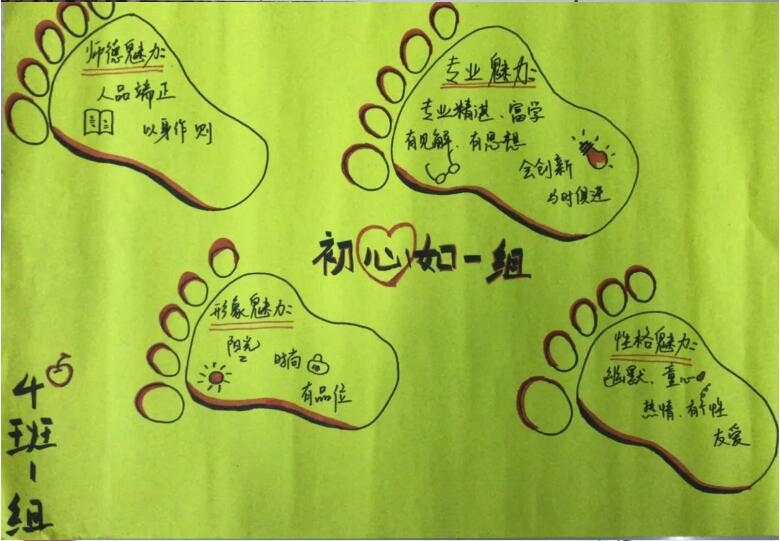 师德魅力:
人品端正
以身作则
专业魅力:
专业精湛、富学
有见解、有思想
会创新
与时俱进
初心如一组
形象魅力:
阳光
时尚
有品位
性格魅力:
幽默、童心
热情、有个性
友爱
4班1组